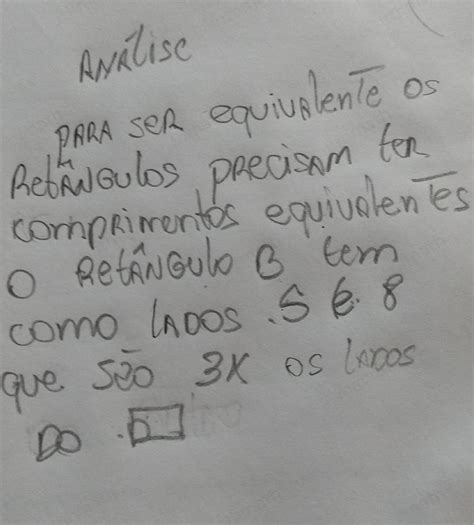 ANÁLISE
PARA SER equivalente os
RetÂNGULOS PRECISAM ter
comprimentos equivalentes
O RetÂNGULO B tem
como lADOS .S E. 8
que são 3X os lADOS
DO .D